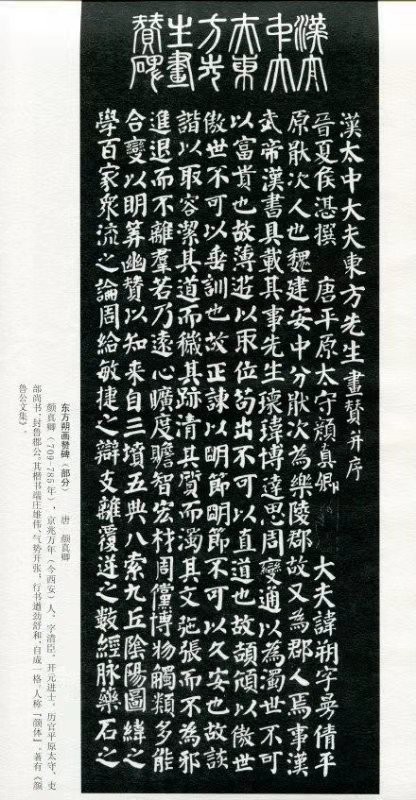 漢太
中大
夫東
方先
生畫
贊碑
漢太中大夫東方先生畫贊并序
晉夏侯湛撰 唐平原太守顏真卿 大夫諱朔字曼倩平
原猒次人也魏建安中分猒次為樂陵郡故又為郡人焉事漢
武帝漢書具載其事先生瓌瑋博達思周變通以為濁世不可
以富貴也故薄遊以取位苟出不可以直道也故頡頏以傲世
傲世不可以垂訓也故正諫以明節明節不可以久安也故詼
諧以取容潔其道而穢其跡清其質而濁其文弛張而不為邪
進退而不離羣若乃遠心曠度贍智宏材倜儻博物觸類多能
合變以明筭幽贊以知來自三墳五典八索九丘陰陽圖緯之
學百家衆流之論周給敏捷之辯支離覆逆之數經脉藥石之
东方朔画赞碑（部分） 唐 颜真卿
颜真卿（709-785年），京兆万年（今西安）人，字清臣，开元进士，历官平原太守、吏
部尚书，封鲁郡公。其楷书端庄雄伟、气势开张；行书遒劲舒和，自成一格，人称「颜体」，著有《颜
鲁公文集》。